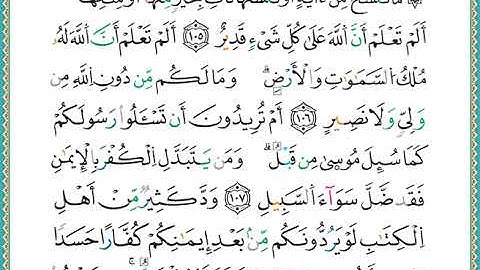 أَلَمْ تَعْلَمْ أَنَّ ٱللَّهَ عَلَىٰ كُلِّ شَىْءٍ قَدِيرٌ ﴿١٠٥﴾ أَلَمْ تَعْلَمْ أَنَّ ٱللَّهَ لَهُۥ
مُلْكُ ٱلسَّمَٰوَٰتِ وَٱلْأَرْضِ ۗ وَمَا لَكُم مِّن دُونِ ٱللَّهِ مِن
وَلِىٍّ وَلَا نَصِيرٍ ﴿١٠٦﴾ أَمْ تُرِيدُونَ أَن تَسْـَٔلُوا۟ رَسُولَكُمْ
كَمَا سُئِلَ مُوسَىٰ مِن قَبْلُ ۗ وَمَن يَتَبَدَّلِ ٱلْكُفْرَ بِٱلْإِيمَٰنِ
فَقَدْ ضَلَّ سَوَآءَ ٱلسَّبِيلِ ﴿١٠٧﴾ وَدَّ كَثِيرٌ مِّنْ أَهْلِ
ٱلْكِتَٰبِ لَوْ يَرُدُّونَكُم مِّنۢ بَعْدِ إِيمَٰنِكُمْ كُفَّارًا حَسَدًا